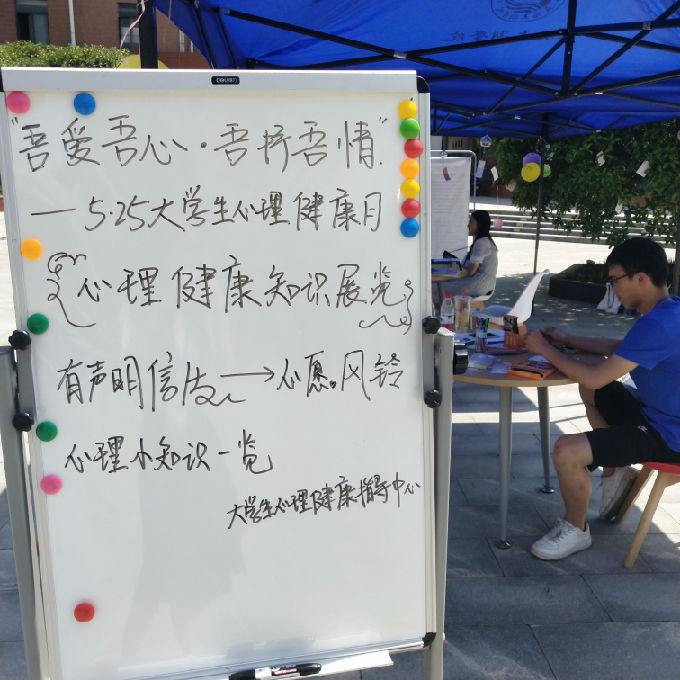 "吾爱吾心·吾抒吾情"
—5·25大学生心理健康月
心理健康知识展览
有声明信片→心愿风铃
心理小知识一览
大学生心理健康指导中心